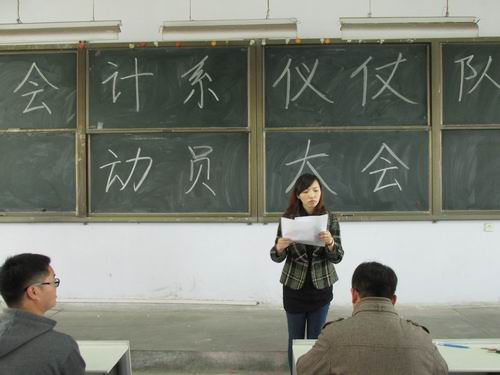 会计系仪仗队
动员大会